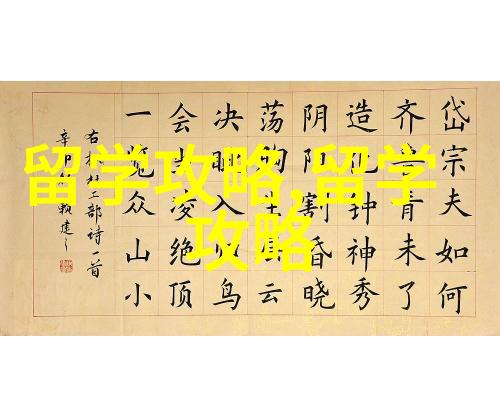 留学攻略,留学
攻略
岱宗夫如何
齐青未了
造化钟神秀
阴阳割昏晓
荡胸生云
决眦入鸟
会当凌绝顶
一览众山小
右杜工部诗一首
辛赖建